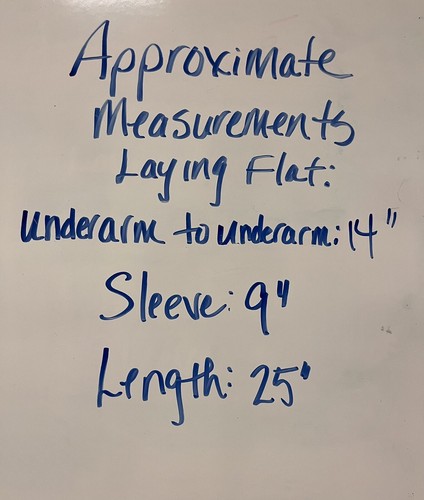 Approximate
Measurements
Laying Flat:
underarm to underarm: 14"
Sleeve: 9"
Length: 25"